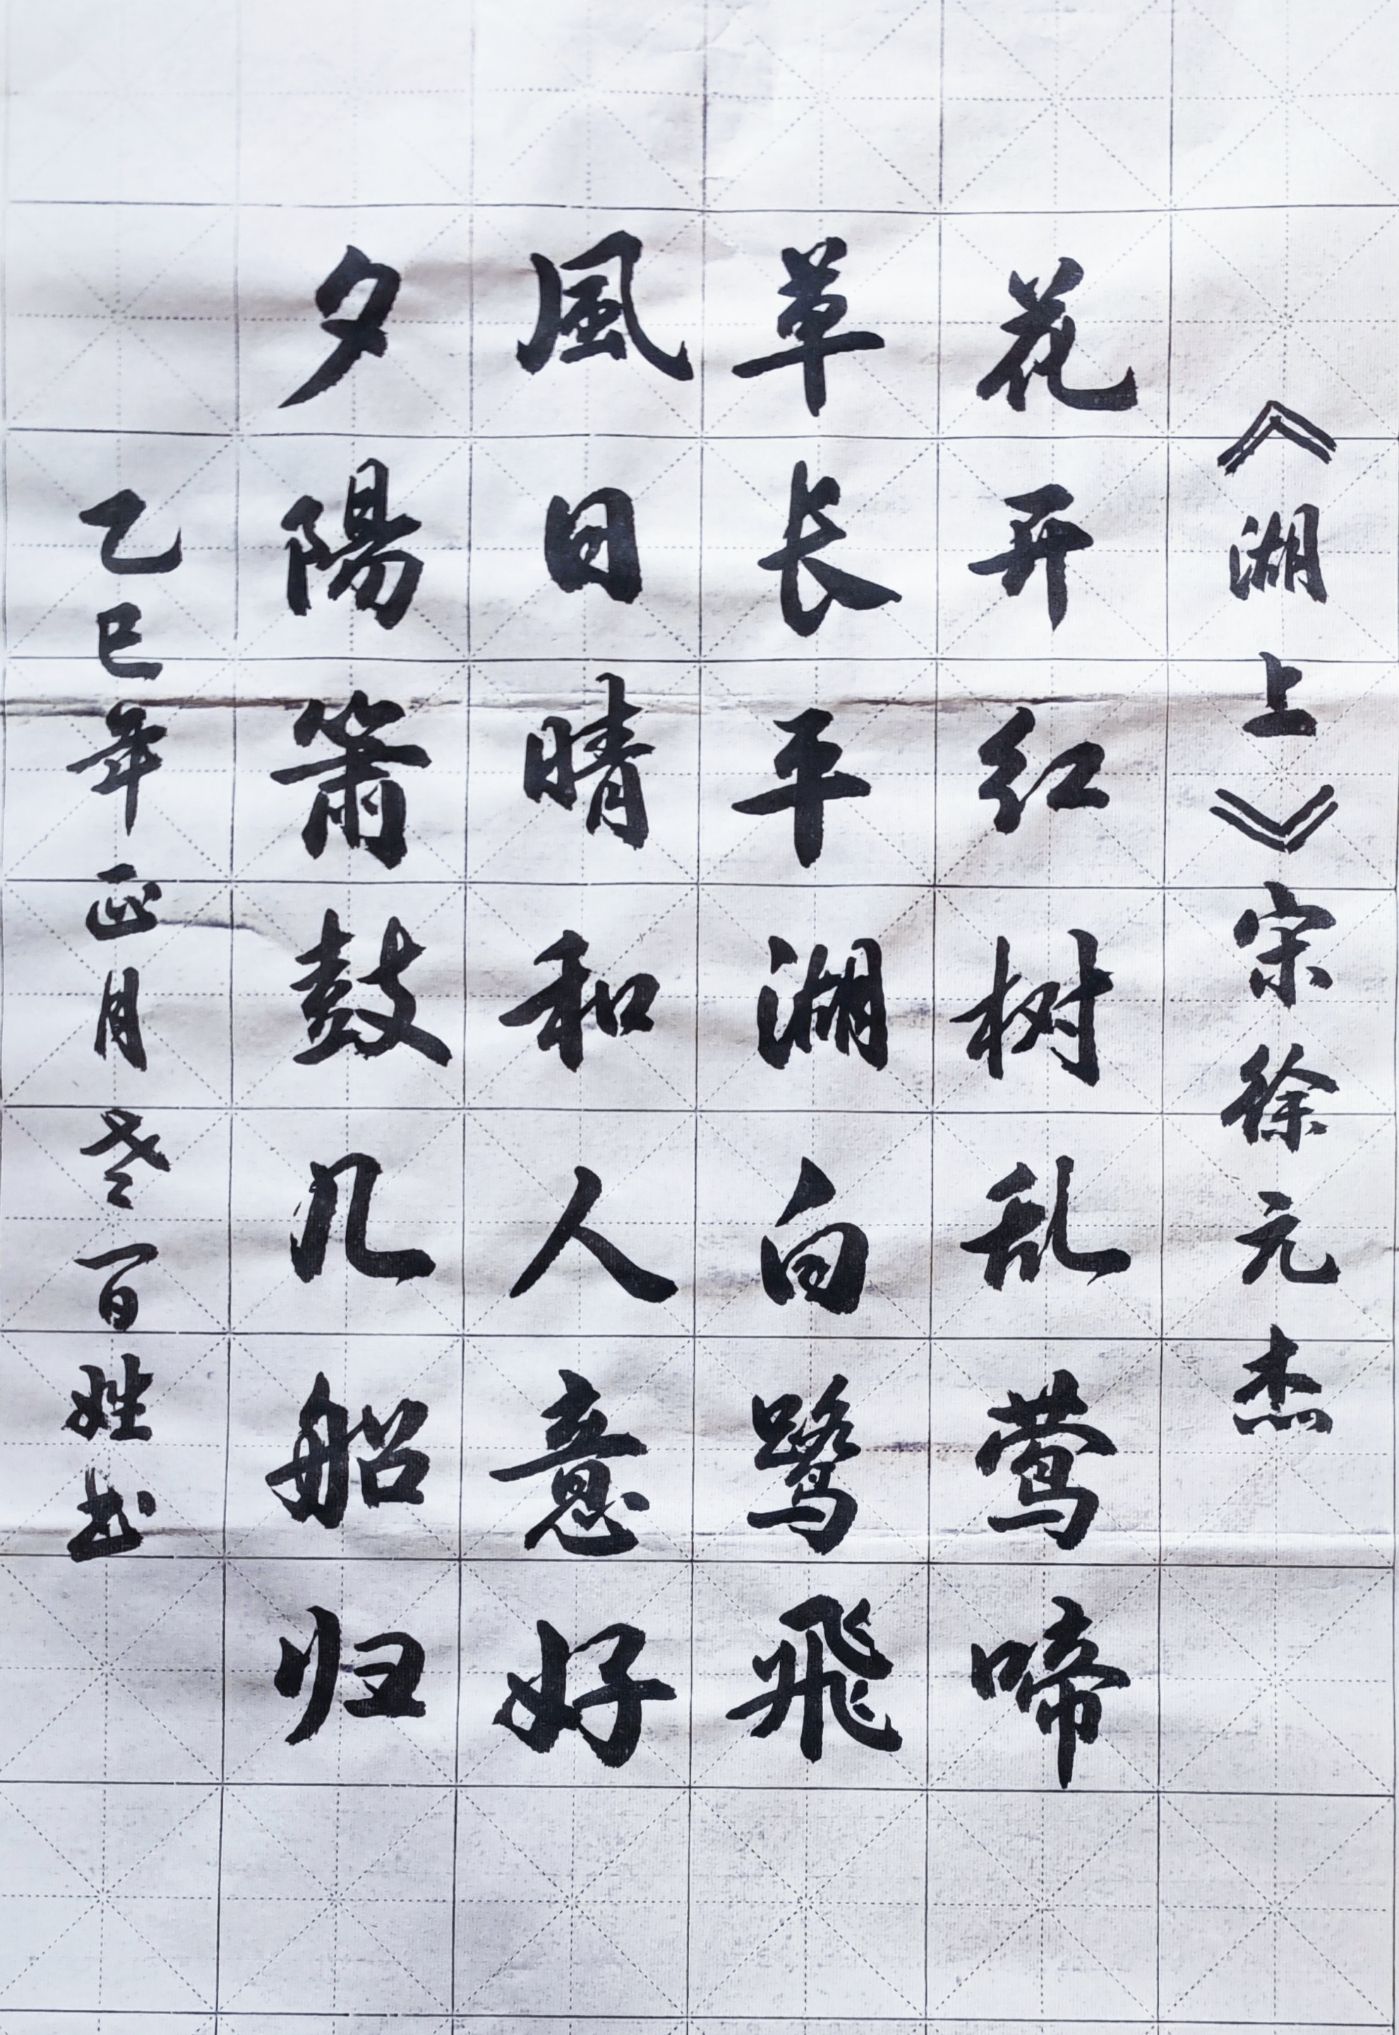 《湖上》宋徐元杰
花开红树乱莺啼
草长平湖白鹭飛
風日晴和人意好
夕陽箫鼓几船归
乙巳年正月老百姓书